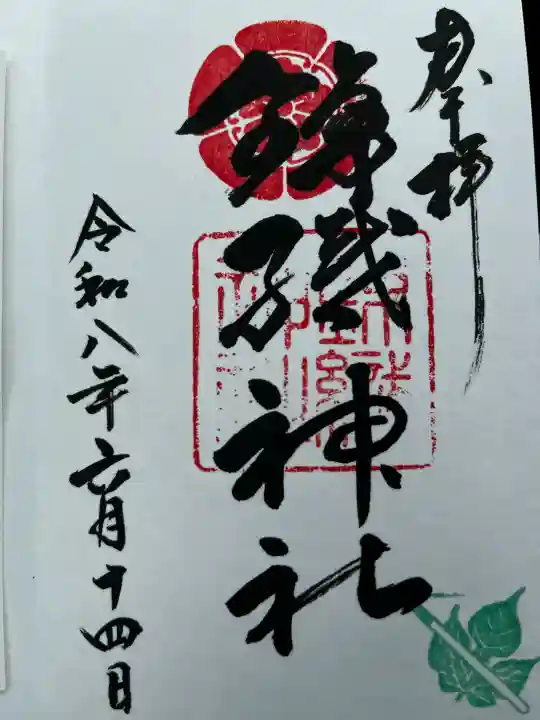 奉拝
錦織神社
令和八年六月十四日